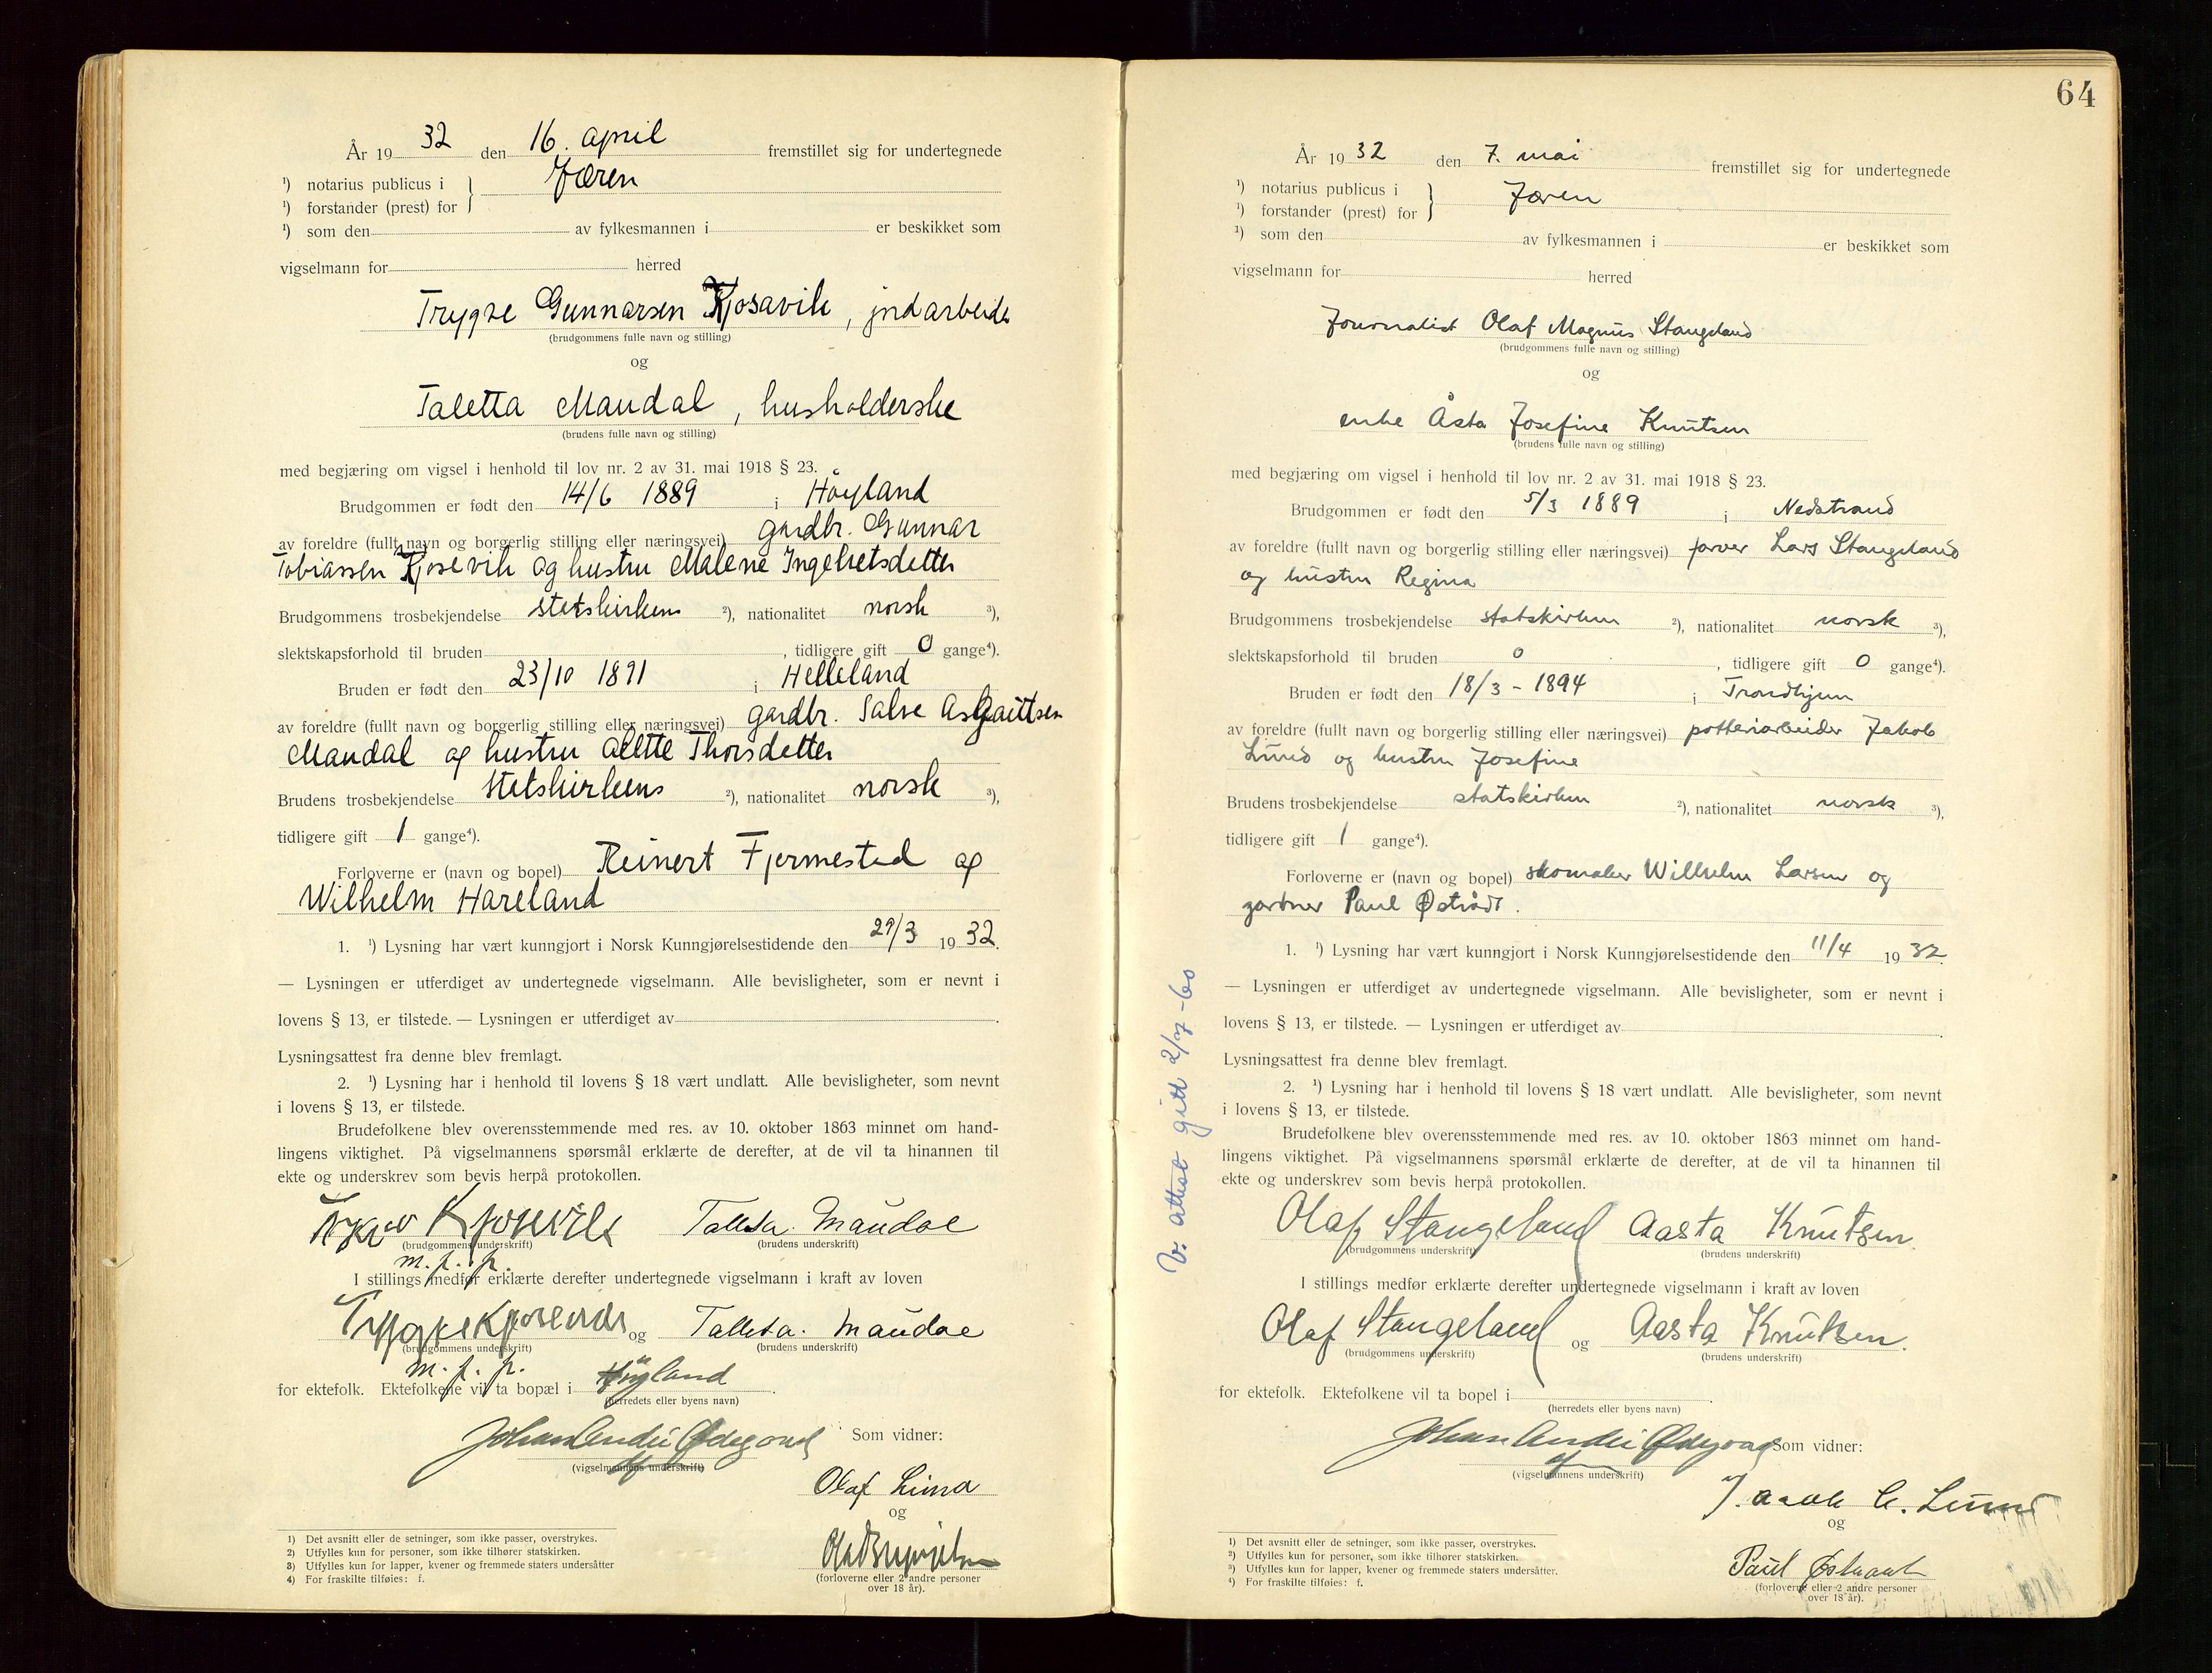 År 19 32 den 16. april fremstillet sig for undertegnede
¹) notarius publicus i } Jæren
¹) forstander (prest) for
¹) som den av fylkesmannen i er beskikket som
vigselmann for herred
Trygve Gunnarsen Kjosavik, jordarbeider
(brudgommens fulle navn og stilling)
og
Taletta Maudal, husholderske
(brudens fulle navn og stilling)
med begjæring om vigsel i henhold til lov nr. 2 av 31. mai 1918 § 23.
Brudgommen er født den 14/6 1889 i Høyland
av foreldre (fullt navn og borgerlig stilling eller næringsvei) gardbr. Gunnar
Tobiassen Kjosevik og hustru Malene Ingebretsdatter
Brudgommens trosbekjendelse statskirkens ²), nationalitet norsk ³),
slektskapsforhold til bruden , tidligere gift 0 gange⁴).
Bruden er født den 23/10 1891 i Helleland
av foreldre (fullt navn og borgerlig stilling eller næringsvei) gardbr. Salve Asgautsen
Maudal og hustru Alette Thorsdatter
Brudens trosbekjendelse statskirkens ²), nationalitet norsk ³),
tidligere gift 1 gange⁴).
Forloverne er (navn og bopel) Reinert Fjermestad og
Wilhelm Hareland
1. ¹) Lysning har vært kunngjort i Norsk Kunngjørelsestidende den 29/3 19 32.
— Lysningen er utferdiget av undertegnede vigselmann. Alle bevisligheter, som er nevnt i
lovens § 13, er tilstede. — Lysningen er utferdiget av .
Lysningsattest fra denne blev fremlagt.
2. ¹) Lysning har i henhold til lovens § 18 vært undlatt. Alle bevisligheter, som nevnt
i lovens § 13, er tilstede.
Brudefolkene blev overensstemmende med res. av 10. oktober 1863 minnet om hand-
lingens viktighet. På vigselmannens spørsmål erklærte de derefter, at de vil ta hinannen til
ekte og underskrev som bevis herpå protokollen.
Kjosevik Talleta. Maudae
(brudgommens underskrift) (brudens underskrift)
m. f. p.
I stillings medfør erklærte derefter undertegnede vigselmann i kraft av loven
Trygve Kjosevik og Talleta. Maudae
(brudgommens underskrift) (brudens underskrift)
m. f. p.
for ektefolk. Ektefolkene vil ta bopæl i Høyland .
(herredets eller byens navn)
Johan Andri Ødegaard Som vidner:
(vigselmannens underskrift)
Olaf Lima
og
(forloverne eller 2 andre personer
over 18 år).
1) Det avsnitt eller de setninger, som ikke passer, overstrykes.
2) Utfylles kun for personer, som ikke tilhører statskirken.
3) Utfylles kun for lapper, kvener og fremmede staters undersåtter
4) For fraskilte tilføies: f.
64
År 19 32 den 7. mai fremstillet sig for undertegnede
¹) notarius publicus i } Jæren
¹) forstander (prest) for
¹) som den av fylkesmannen i er beskikket som
vigselmann for herred
Journalist Olaf Magnus Stangeland
(brudgommens fulle navn og stilling)
og
enke Åsta Josefine Knutsen
(brudens fulle navn og stilling)
med begjæring om vigsel i henhold til lov nr. 2 av 31. mai 1918 § 23.
Brudgommen er født den 5/3 1889 i Nedstrand
av foreldre (fullt navn og borgerlig stilling eller næringsvei) farver Lars Stangeland
og hustru Regina
Brudgommens trosbekjendelse statskirken ²), nationalitet norsk ³),
slektskapsforhold til bruden 0 , tidligere gift 0 gange⁴).
Bruden er født den 18/3 - 1894 i Trondhjem
av foreldre (fullt navn og borgerlig stilling eller næringsvei) potteriarbeider Jakob
Lund og hustru Josefine
Brudens trosbekjendelse statskirken ²), nationalitet norsk ³),
tidligere gift 1 gange⁴).
Forloverne er (navn og bopel) skomaker Wilhelm Larsen og
gartner Paul Østrådt.
1. ¹) Lysning har vært kunngjort i Norsk Kunngjørelsestidende den 11/4 19 32.
— Lysningen er utferdiget av undertegnede vigselmann. Alle bevisligheter, som er nevnt i
lovens § 13, er tilstede. — Lysningen er utferdiget av .
Lysningsattest fra denne blev fremlagt.
2. ¹) Lysning har i henhold til lovens § 18 vært undlatt. Alle bevisligheter, som nevnt
i lovens § 13, er tilstede.
Brudefolkene blev overensstemmende med res. av 10. oktober 1863 minnet om hand-
lingens viktighet. På vigselmannens spørsmål erklærte de derefter, at de vil ta hinannen til
ekte og underskrev som bevis herpå protokollen.
Olaf Stangeland Aasta Knutsen.
(brudgommens underskrift) (brudens underskrift)
I stillings medfør erklærte derefter undertegnede vigselmann i kraft av loven
Olaf Stangeland og Aasta Knutsen.
(brudgommens underskrift) (brudens underskrift)
for ektefolk. Ektefolkene vil ta bopel i .
(herredets eller byens navn)
Johan Andri Ødegaard Som vidner:
(vigselmannens underskrift)
Lund
og
Paul Østraadt
(forloverne eller 2 andre personer
over 18 år).
¹) Det avsnitt eller de setninger, som ikke passer, overstrykes.
²) Utfylles kun for personer, som ikke tilhører statskirken.
³) Utfylles kun for lapper, kvener og fremmede staters undersåtter.
⁴) For fraskilte tilføies: f.
V. attest gitt 2/7 -60